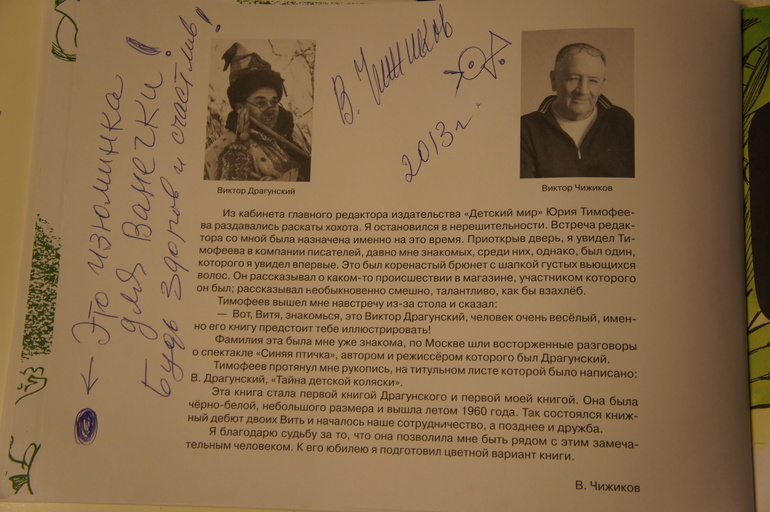 ← Это изюминка
для Ванечки!
Будь здоров и счастлив!
В. Чижиков
2013 г.
Виктор Драгунский
Виктор Чижиков
Из кабинета главного редактора издательства «Детский мир» Юрия Тимофее-
ва раздавались раскаты хохота. Я остановился в нерешительности. Встреча редак-
тора со мной была назначена именно на это время. Приоткрыв дверь, я увидел Ти-
мофеева в компании писателей, давно мне знакомых, среди них, однако, был один,
которого я увидел впервые. Это был коренастый брюнет с шапкой густых вьющихся
волос. Он рассказывал о каком-то происшествии в магазине, участником которого
он был; рассказывал необыкновенно смешно, талантливо, как бы взахлёб.
Тимофеев вышел мне навстречу из-за стола и сказал:
— Вот, Витя, знакомься, это Виктор Драгунский, человек очень весёлый, имен-
но его книгу предстоит тебе иллюстрировать!
Фамилия эта была мне уже знакома, по Москве шли восторженные разговоры
о спектакле «Синяя птичка», автором и режиссёром которого был Драгунский.
Тимофеев протянул мне рукопись, на титульном листе которой было написано:
В. Драгунский, «Тайна детской коляски».
Эта книга стала первой книгой Драгунского и первой моей книгой. Она была
чёрно-белой, небольшого размера и вышла летом 1960 года. Так состоялся книж-
ный дебют двоих Вить и началось наше сотрудничество, а позднее и дружба.
Я благодарю судьбу за то, что она позволила мне быть рядом с этим замеча-
тельным человеком. К его юбилею я подготовил цветной вариант книги.
В. Чижиков